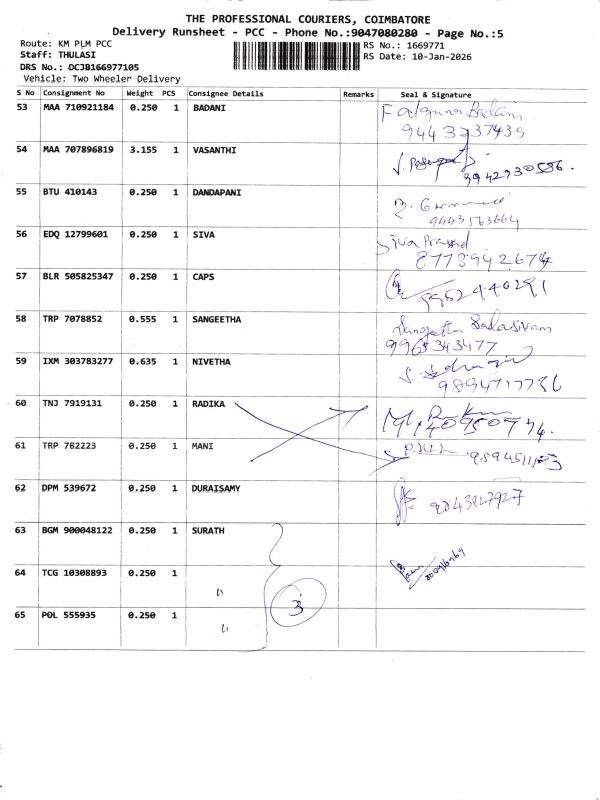 THE PROFESSIONAL COURIERS, COIMBATORE
Delivery Runsheet - PCC - Phone No.:9047080280 - Page No.:5
Route: KM PLM PCC
RS No.: 1669771
Staff: THULASI
RS Date: 10-Jan-2026
DRS No.: DCJB166977105
Vehicle: Two Wheeler Delivery
S No Consignment No Weight PCS Consignee Details Remarks Seal & Signature
53 MAA 710921184 0.250 1 BADANI Badani
54 MAA 707896819 3.155 1 VASANTHI
9942930586.
55 BTU 410143 0.250 1 DANDAPANI
9443563664
56 EDQ 12799601 0.250 1 SIVA Siva Prasad
8773942674
57 BLR 505825347 0.250 1 CAPS
9952440291
58 TRP 7078852 0.555 1 SANGEETHA Sangeetha Sadasivam
9965343477
59 IXM 303783277 0.635 1 NIVETHA
60 TNJ 7919131 0.250 1 RADIKA
61 TRP 782223 0.250 1 MANI
62 DPM 539672 0.250 1 DURAISAMY
63 BGM 900048122 0.250 1 SURATH
64 TCG 10308893 0.250 1 "
3
65 POL 555935 0.250 1 "